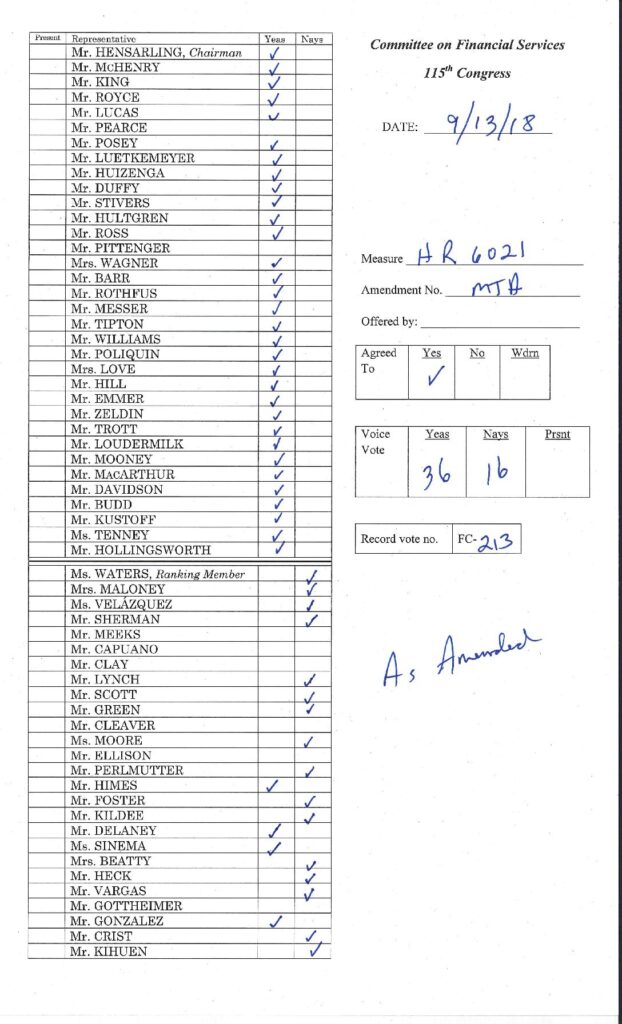 Present Representative Yeas Nays
Mr. HENSARLING, Chairman ✓
Mr. McHENRY ✓
Mr. KING ✓
Mr. ROYCE ✓
Mr. LUCAS ✓
Mr. PEARCE
Mr. POSEY ✓
Mr. LUETKEMEYER ✓
Mr. HUIZENGA ✓
Mr. DUFFY ✓
Mr. STIVERS ✓
Mr. HULTGREN ✓
Mr. ROSS ✓
Mr. PITTENGER
Mrs. WAGNER ✓
Mr. BARR ✓
Mr. ROTHFUS ✓
Mr. MESSER ✓
Mr. TIPTON ✓
Mr. WILLIAMS ✓
Mr. POLIQUIN ✓
Mrs. LOVE ✓
Mr. HILL ✓
Mr. EMMER ✓
Mr. ZELDIN ✓
Mr. TROTT ✓
Mr. LOUDERMILK ✓
Mr. MOONEY ✓
Mr. MacARTHUR ✓
Mr. DAVIDSON ✓
Mr. BUDD ✓
Mr. KUSTOFF ✓
Ms. TENNEY ✓
Mr. HOLLINGSWORTH ✓
Ms. WATERS, Ranking Member ✓
Mrs. MALONEY ✓
Ms. VELÁZQUEZ ✓
Mr. SHERMAN ✓
Mr. MEEKS
Mr. CAPUANO
Mr. CLAY
Mr. LYNCH ✓
Mr. SCOTT ✓
Mr. GREEN ✓
Mr. CLEAVER
Ms. MOORE ✓
Mr. ELLISON
Mr. PERLMUTTER ✓
Mr. HIMES ✓
Mr. FOSTER ✓
Mr. KILDEE ✓
Mr. DELANEY ✓
Ms. SINEMA ✓
Mrs. BEATTY ✓
Mr. HECK ✓
Mr. VARGAS ✓
Mr. GOTTHEIMER
Mr. GONZALEZ ✓
Mr. CRIST ✓
Mr. KIHUEN ✓
Committee on Financial Services
115th Congress
DATE: 9/13/18
Measure HR 6021
Amendment No. MTA
Offered by:
Agreed To Yes No Wdrn
✓
Voice Vote Yeas Nays Prsnt
36 16
Record vote no. FC-213
As Amended